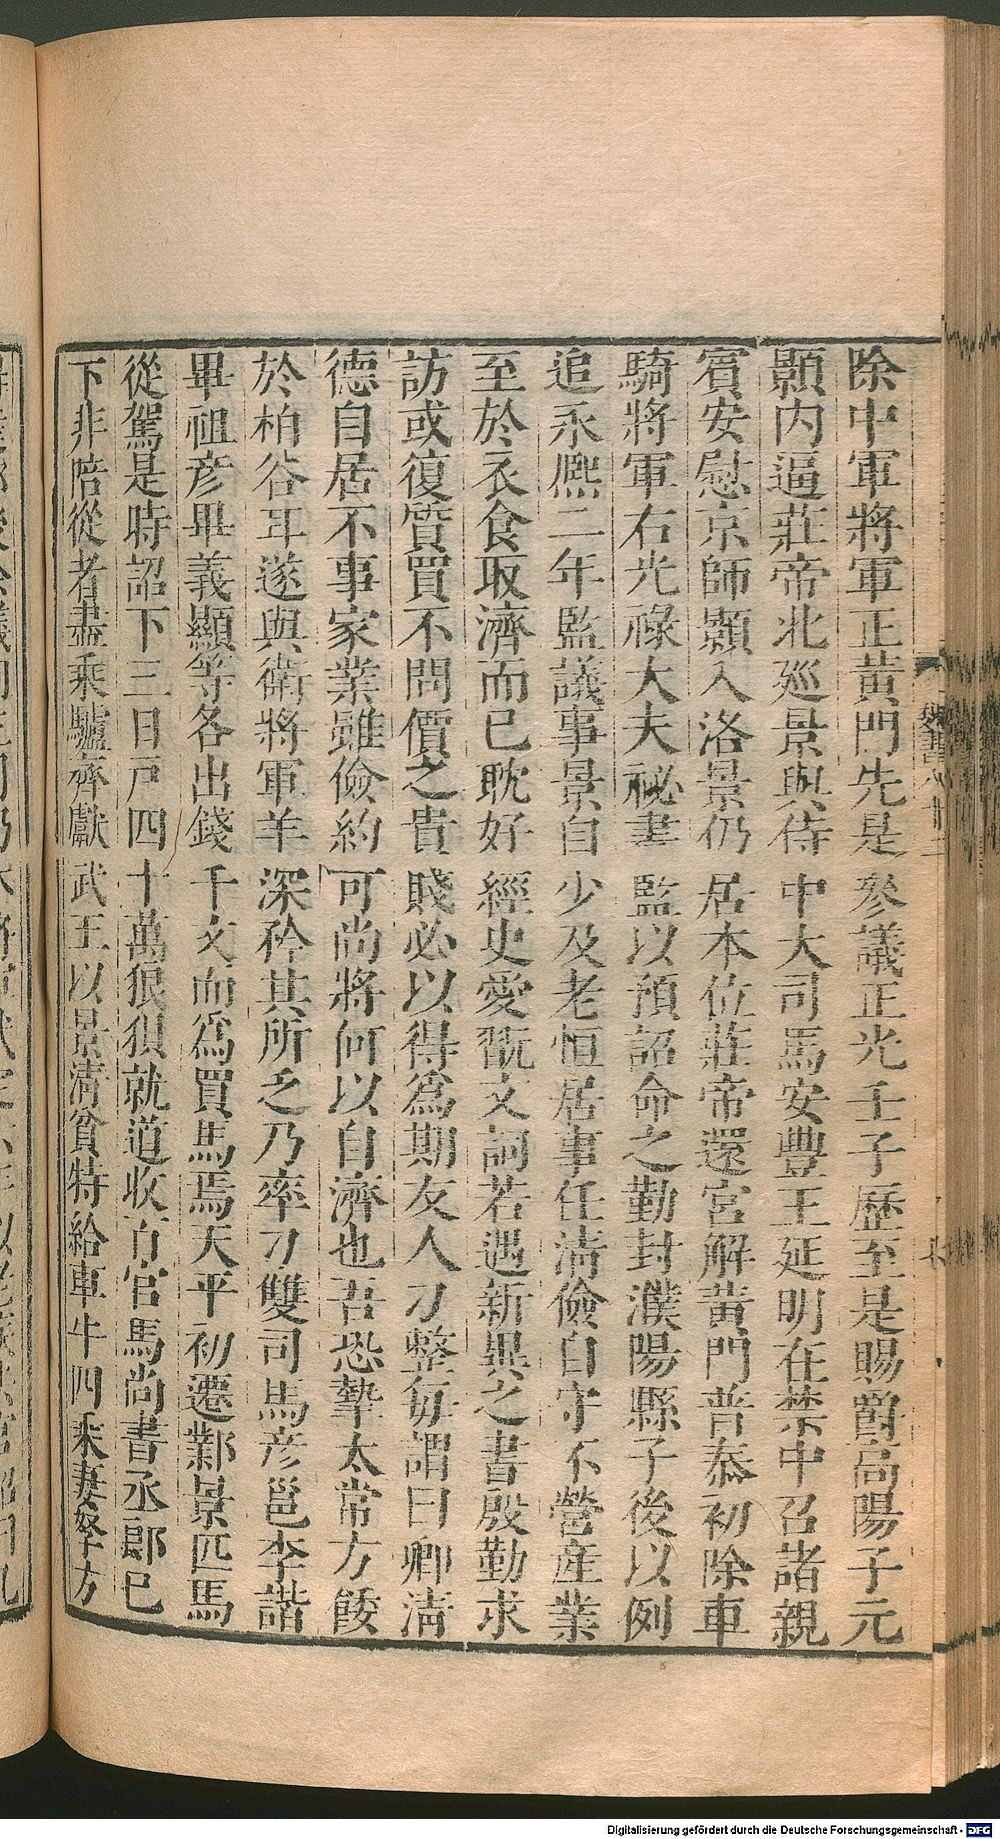 除中軍將軍正黃門先是參議正光壬子歷至是賜爵高陽子元
顥內逼莊帝北廵景與侍中大司馬安豐王延明在禁中召諸親
賓安慰京師顥入洛景仍居本位莊帝還宮解黃門普泰初除車
騎將軍右光祿大夫祕書監以預詔命之勤封濮陽縣子後以例
追永熈二年監議事景自少及老恒居事任清儉自守不營產業
至於衣食取濟而已耽好經史愛翫文詞若遇新異之書殷勤求
訪或復質買不問價之貴賤必以得爲期友人刁整每謂曰卿清
德自居不事家業雖儉約可尚將何以自濟也吾恐摯太常方餧
於柏谷耳遂與衛將軍羊深矜其所乏乃率刁雙司馬彥邕李諧
畢祖彥畢義顯等各出錢千文而爲買馬焉天平初遷鄴景匹馬
從駕是時詔下三日戸四十萬狠狽就道收百官馬尚書丞郎已
下非陪從者盡乘驢齊獻武王以景清貧特給車牛四乘妻孥方
Digitalisierung gefördert durch die Deutsche Forschungsgemeinschaft - DFG